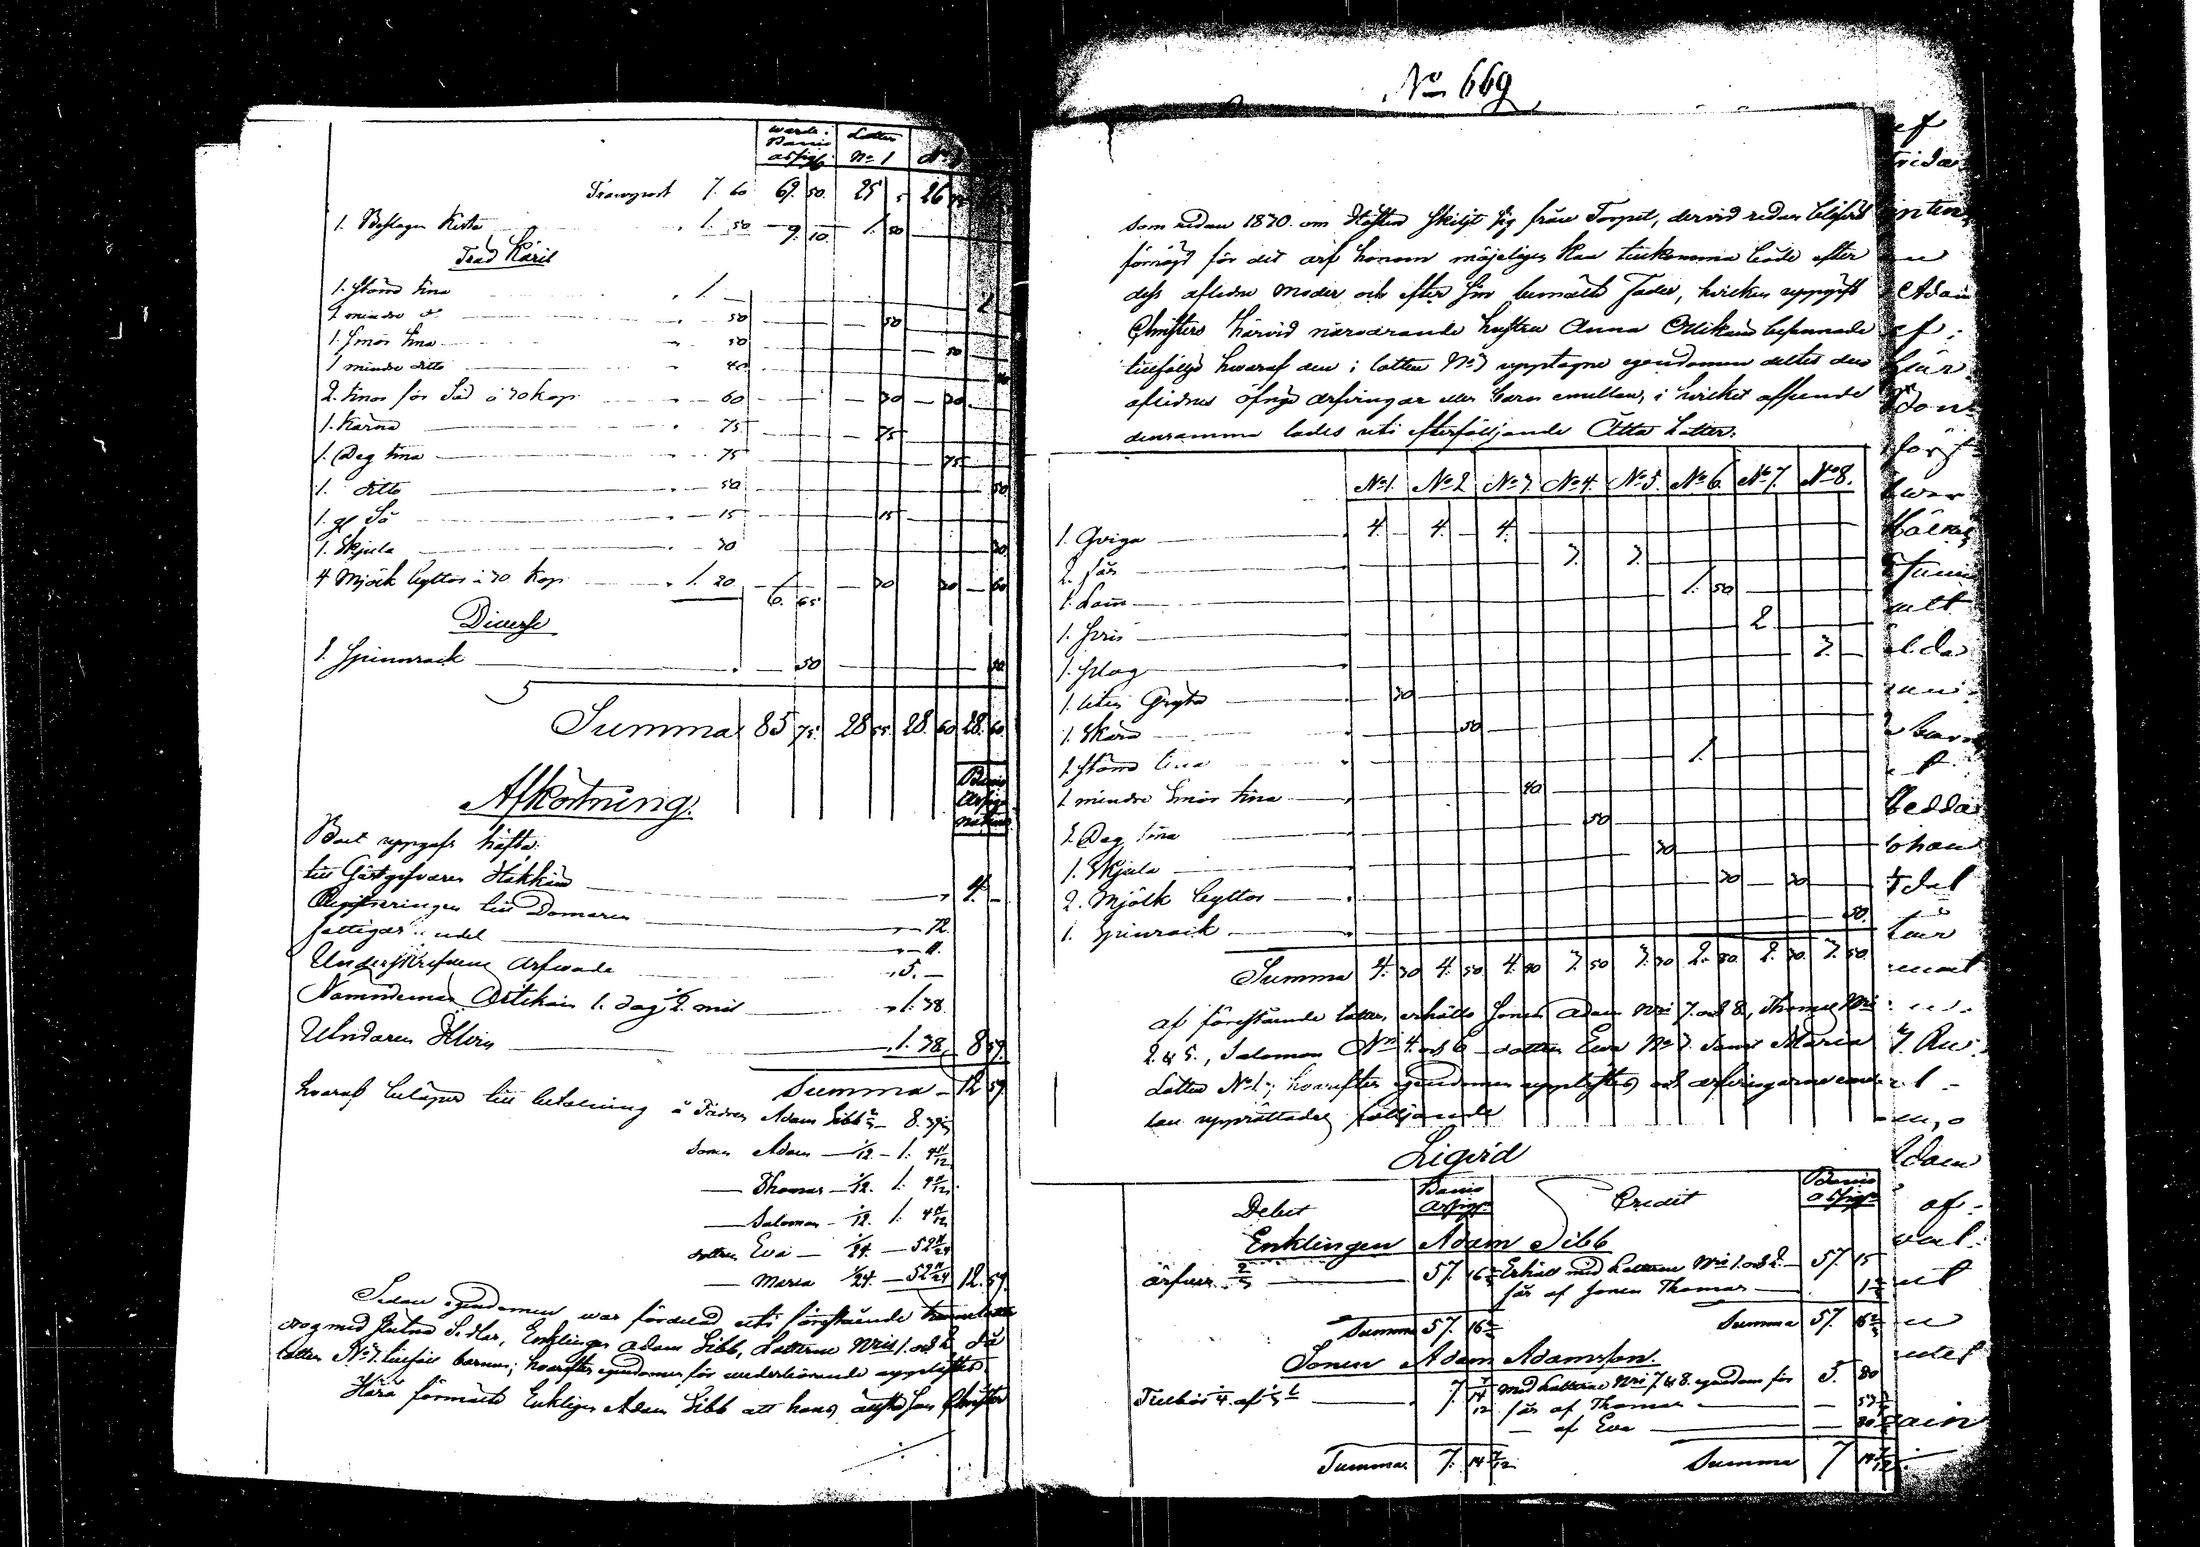 wärde Banco assign. Lotten No 1 No 2
Transport 7. 60 69. 50. 25 5 26
1. Beslagen Kista 1. 50 9. 10. 1. 50
Träd Käril
1. större tina 1. —
1 mindre do 50 50
1. Smör tina 50 50
1 mindre ditto 40
2. tinor för Säd à 30 kop 60 30 30
1. Kärna 75 75
1. Deg tina 75 75
1. ditto 50 50
1. gl Så 15 15
1. Skjula 30 30
4 Mjölk byttor à 30 kop 1. 20 6. 65 30 30 60
Diverse
1. Spinnrock 50 50
Summa 85 75. 28 55 28. 60 28. 60
Afkortning. Banco Assignationer
Boet uppgafs häfta:
till Gästgifvaren Häkkäin 4. —
till Domaren 72.
fattigas andel 11.
Underskrifvne 5. —
Nämndeman 1. dag 2. mil 1. 38.
1. 38, 8 59.
Summa — 12 59.
hvaraf belöper till betalning å Fadren Adam Sibb 2/3 — 8. 39 1/3
Sonen Adam — 1/12 — 1. 4 11/12
— Thomas — 1/12. 1. 4 11/12
— Salomon — 1/12. 1. 4 11/12
dottren Eva — 1/24. — 52 11/24
— Maria 1/24. — 52 11/24 12. 59.
Sedan egendomen war fördelad uti förestående
drog med Enklingen Adam Sibb, Lotterne Nris 1. och 2. då
lotten No 3. tillföll barnen; hvarefter egendomen för vederbörande
Härå förmälte Enklingen Adam Sibb att hans äldsta Son Christer
No 669
som redan 1830. om Hösten skiljt sig från Torpet, dervid redan blifvit
förnögd för det arf honom möjeligen kan tillkomma både efter
dess aflidne Moder och efter sin bemälte Fader, hvilken uppgift
Christers härvid närvarande hustru Anna Ollikain besannade
tillfölje hvaraf den i lotten No 3 upptagne egendomen deltes den
aflidnes öfrige arfvingar eller barn emellan, i hvilket afseende
densamma lades uti efterföljande Åtta Lotter.
No 1. No 2 No 3. No 4. No 5. No 6. No 7. No 8.
1. Qviga 4. — 4. — 4. —
2. får 3. 3.
1. Lam 1. 50
1. gris 2.
1. plog 3. —
1. liten Gryta 30
1. Skära 50
1. större tina 1.
1 mindre Smör tina 40
1. Deg tina 50
1. Skjula 30
2. Mjölk byttor 30 30
1. Spinrock 50.
Summa 4. 30 4. 50 4. 40 3. 50 3. 30 2. 80 2. 30. 3. 50
af förestående lotter, erhölls Sonen Adam Nris 7. och 8, Thomas Nris
2. & 5., Salomon Nris 4. och 6 — dottren Ewa No 3. samt Maria
Lotten No 1.; hvarefter egendomen upplyftes, och arfvingarne emel-
lan upprättades följande
Liqvid
Debet Banco assign. Credit Banco assign.
Enklingen Adam Sibb
ärfver 2/3 57. 16 2/3 Erhåll med Lotterne Nris 1. och 2. — 57. 15
får af Sonen Thomas 1 2/3
Summa 57. 16 2/3 Summa 57. 16 2/3
Sonen Adam Adamsson.
Tillkör 1/4. af 1/3 7. 14 7/12 med Lotterne Nris 7. & 8. egendom för 5. 80
får af Thomas
— af Eva
Summa 7. 14 7/12 Summa 7 14 7/12